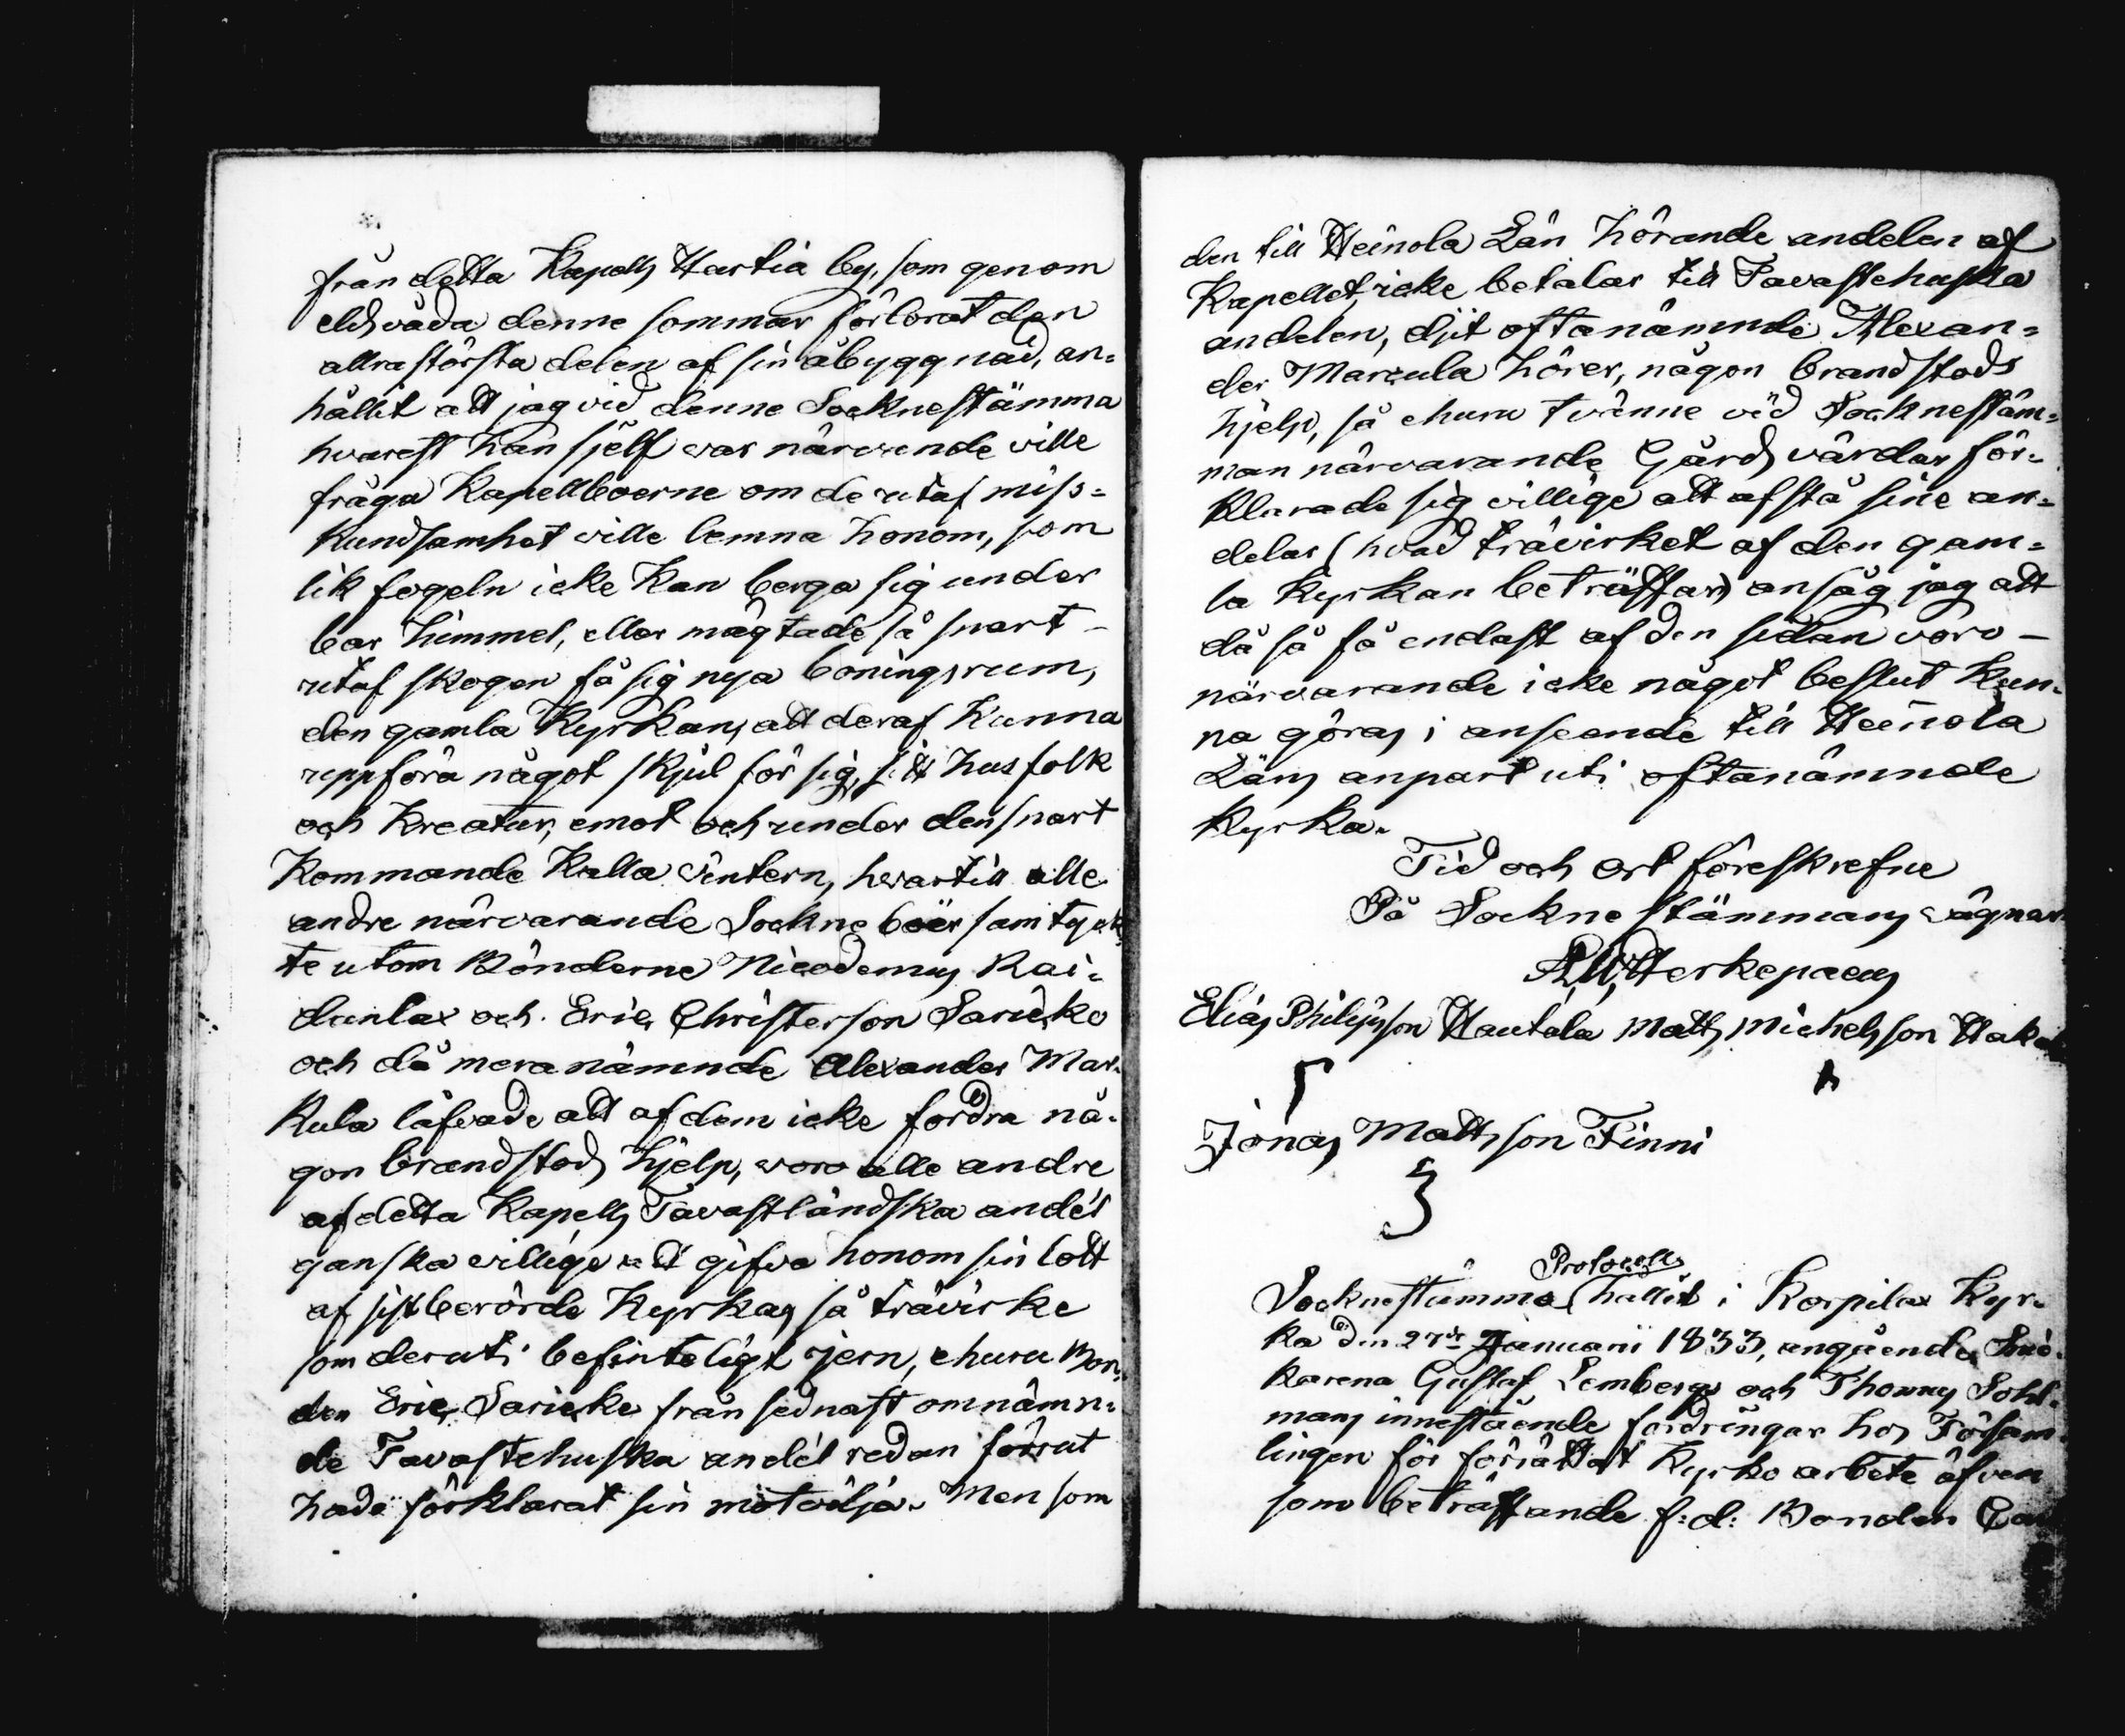 från detta Kapells Hartia by, som genom
eldsvåda denne sommar förlorat den
allrastörsta delen af sin åbyggnad, an=
hållit att jag vid denne Socknestämma
hvarest han sjelf var närvarande ville
fråga Kapellboerne om de utaf miss=
kundsamhet ville lemna honom, som
lik fogeln icke kan berga sig under
bar himmel, eller mägtade så snart
utaf skogen få sig nya boningsrum,
den gamla Kyrkan, att deraf kunna
uppföra något skjul för sig, sitt husfolk
och Kreatur, emot och under den snart
Kommande Kalla vintern, hvartill alle
andre närvarande Sockneboer samtyck=
te utom Bönderne Nicodemus Rai=
danlax och Eric Christersson Sarieko
och då mera nämnde Alexander Mar=
kula låfvade att af dem icke fordra nå=
gon brandstods hjelp, voro alle andre
af detta Kapells Tavastländska andel
ganska villige att gifva honom sin lott
af sistberörde Kyrkas så trävirke
som deruti befinteligt jern, ehuru Bon=
den Eric Sarieke från sednast omnämn=
de Tavastehuska andel redan förut
hade förklarat sin motvilja. Men som
den till Heinola Län hörande andelen af
Kapellet, icke betalar till Tavastehuska
andelen, djit oftanämnde Alexan=
der Marcula hörer, någon brandstods
hjelp, så ehuru tvänne vid Socknestäm=
man närvarande Gårdsvärdar för=
klarade sig villige att afstå sine an=
delar (hvad trävirket af den gam=
la Kyrkan beträffar) ansåg jag att
då så få endast af den sidan voro
närvarande icke något beslut kun=
na göras i anseende till Heinola
Läns anpart uti oftanämnde
Kyrka.
Tid och ort föreskrefne
På Socknestämmans vägnar
Herkepaeus
Elias Philipsson Hautala Matts Michelsson
Jonas Mattsson Finni
Protocoll
Socknestämma hållit i Korpilax Kyr=
ka den 27de Januarii 1833, angående Snic=
karena Gustaf Lembergs och Thomas Sohl=
mans innestående fordringar hos Försam=
lingen för förrättat Kyrko arbete äfven
som beträffande f:d: Bonden